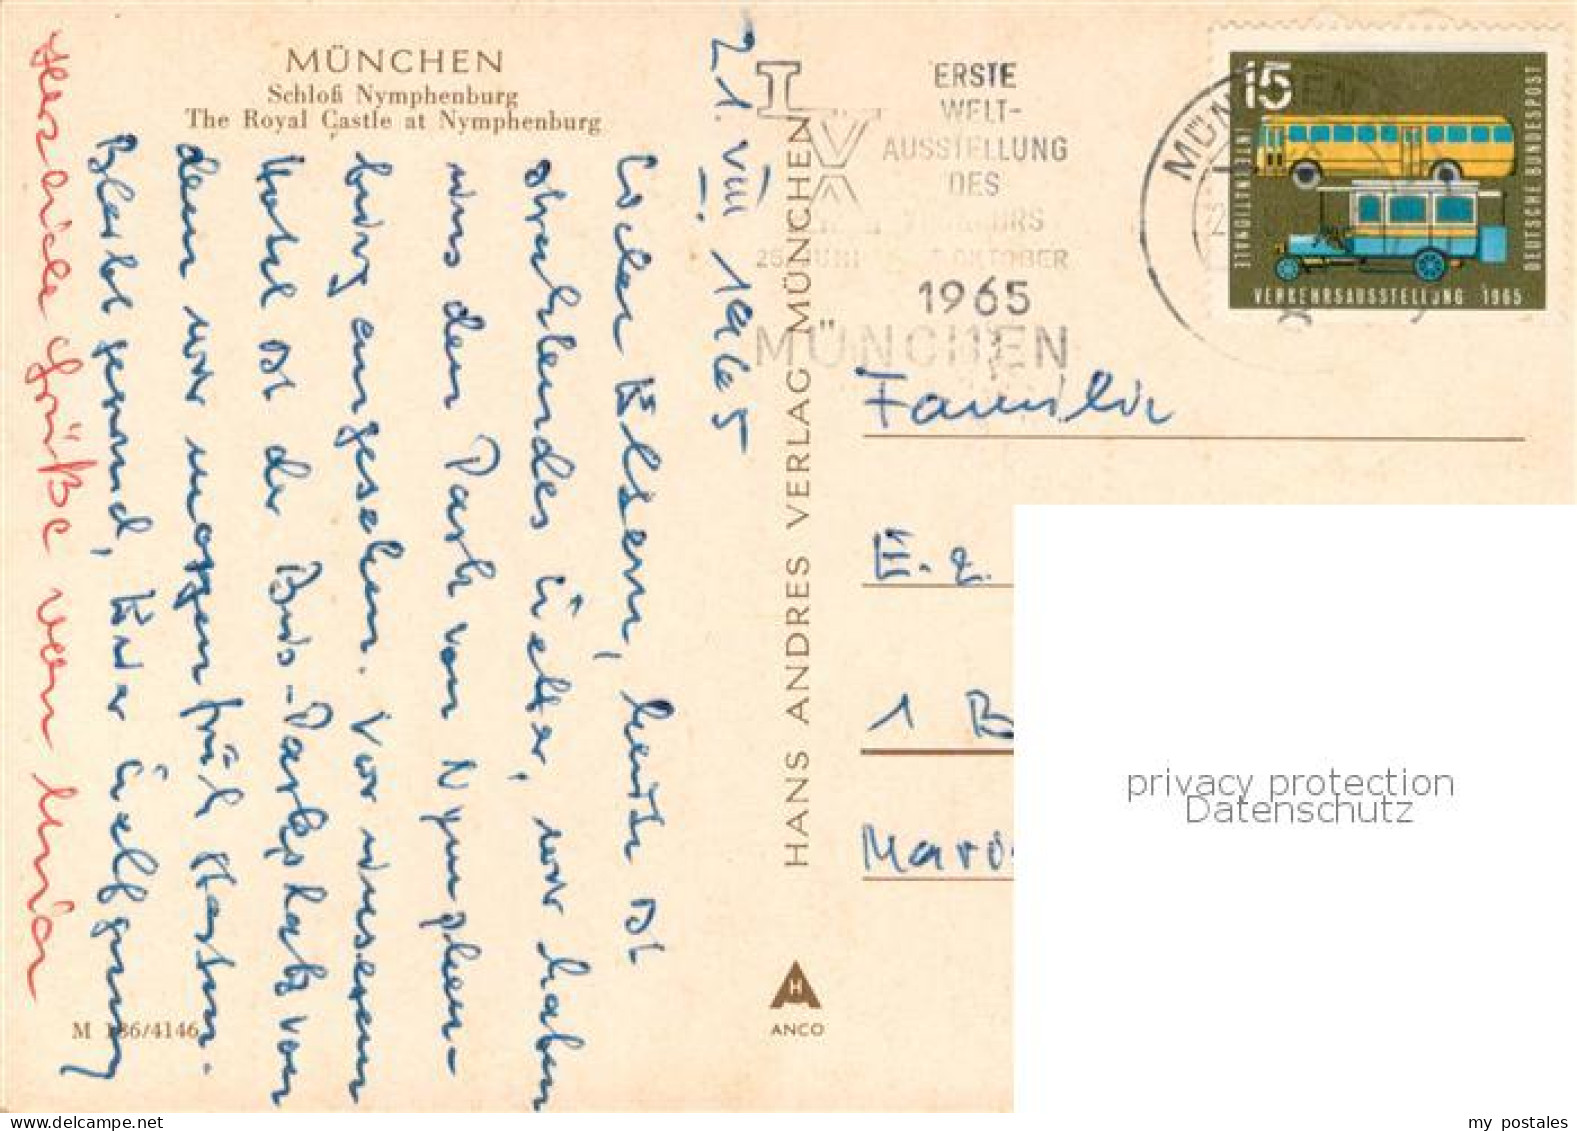 MÜNCHEN
Schloß Nymphenburg
The Royal Castle at Nymphenburg
21. VIII. 1965
Liebe Eltern, heute ist
strahlendes Wetter, wir haben
uns den Park von Nymphen-
burg angesehen. Vor unserem
Hotel ist der Bus-Parkplatz von
dem wir morgen früh starten.
Bleibt gesund,
Herzliche Grüße von
M 136/4146
HANS ANDRES VERLAG MÜNCHEN
H
ANCO
ERSTE
WELT-
AUSSTELLUNG
DES
VERKEHRS
25. JUNI OKTOBER
1965
MÜNCHEN
MÜNCHEN
15
INTERNATIONALE
VERKEHRSAUSSTELLUNG 1965
DEUTSCHE BUNDESPOST
Familie
1 B
privacy protection
Datenschutz
my postales